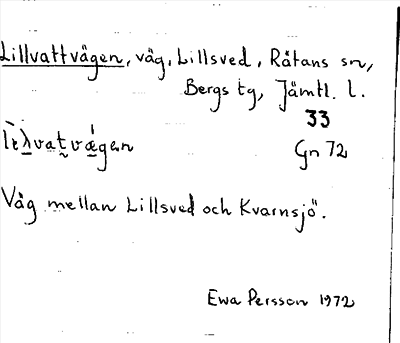 Lillvattvägen, väg, Lillsved, Rätans sn,
Bergs tg, Jämtl. l.
33
Gn 72
Väg mellan Lillsved och Kvarnsjö.
Ewa Persson 1972